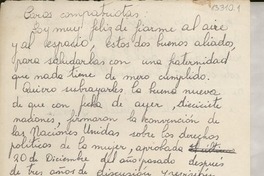 Caros compatriotas:
Soy muy feliz de fiarme al aire
y al espacio, estos dos buenos aliados,
para saludarlas con una fraternidad
que nada tiene de mero cumplido.
Quiero subrayarles la buena nueva
de que con fecha de ayer, diecisiete
naciones, firmaron la convención de
las Naciones Unidas sobre los derechos
políticos de la mujer, aprobada
20 de Diciembre del año pasado después
de tres años de discusión y